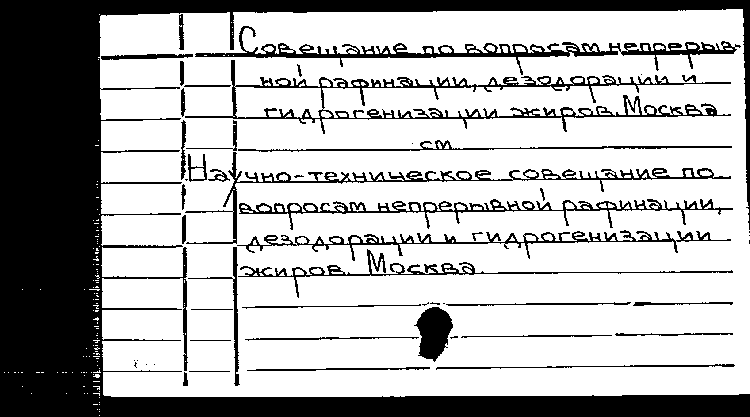 Совещание по вопросам непрерыв-
ной рафинации, дезодорации и
гидрогенизации жиров. Москва
см.
Научно-техническое совещание по
вопросам непрерывной рафинации,
дезодорации и гидрогенизации
жиров. Москва.